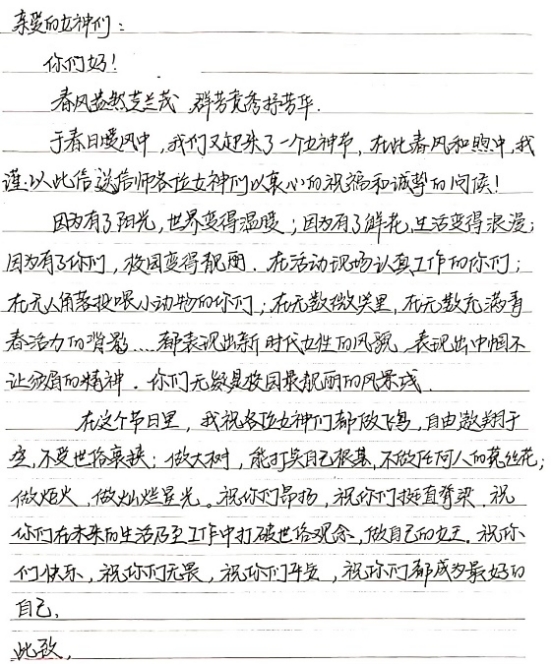 亲爱的女神们：
你们好！
春风盎然芝兰茂，群芳竞秀抒芳华.
于春日暖风中，我们又迎来了一个女神节，在此春风和煦中，我
谨以此信送信师各位女神们以衷心的祝福和诚挚的问候！
因为有了阳光，世界变得温暖；因为有了鲜花，生活变得浪漫；
因为有了你们，校园变得靓丽．在活动现场认真工作的你们；
在无人角落投喂小动物的你们；在无数微笑里，在无数充满青
春活力的背影....都表现出新时代女性的风貌，表现出巾帼不
让须眉的精神．你们无疑是校园最靓丽的风景线．
在这个节日里，我祝各位女神们都做飞鸟，自由翱翔于
空，不受世俗裹挟；做大树，能打实自己根基，不做任何人的菟丝花；
做炬火，做灿烂星光。祝你们昂扬，祝你们挺直脊梁．祝
你们在未来的生活乃至工作中打破世俗观念，做自己的女王．祝你
们快乐，祝你们无畏，祝你们平安，祝你们都成为最好的
自己，
此致，